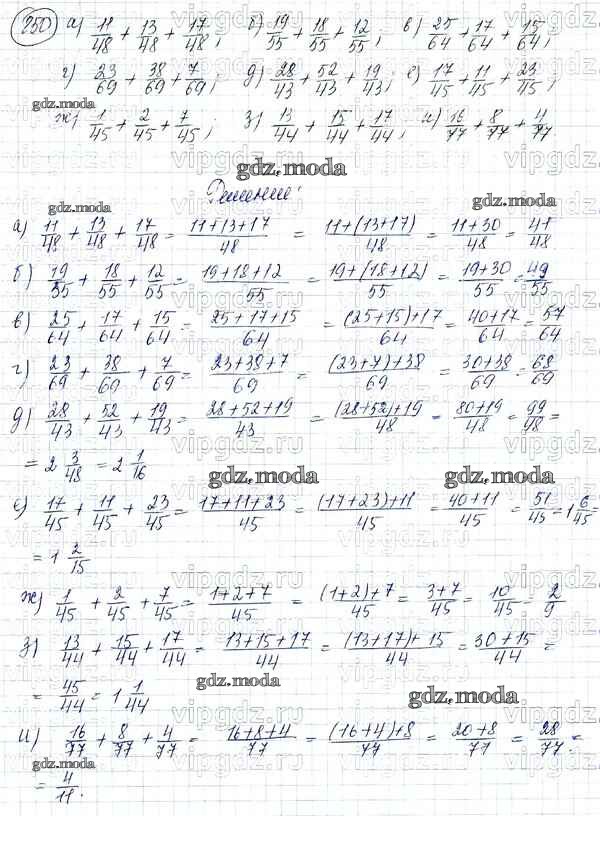 250) а) 11/48 + 13/48 + 17/48; б) 19/55 + 18/55 + 12/55; в) 25/64 + 17/64 + 15/64;
г) 23/69 + 38/69 + 7/69; д) 28/43 + 52/43 + 19/43; е) 17/45 + 11/45 + 23/45;
gdz.moda
ж) 1/45 + 2/45 + 7/45; з) 13/44 + 15/44 + 17/44; и) 16/77 + 8/77 + 4/77
gdz.moda
Решение:
gdz.moda gdz.moda
а) 11/48 + 13/48 + 17/48 = (11+13+17)/48 = (11+(13+17))/48 = (11+30)/48 = 41/48
б) 19/55 + 18/55 + 12/55 = (19+18+12)/55 = (19+(18+12))/55 = (19+30)/55 = 49/55
в) 25/64 + 17/64 + 15/64 = (25+17+15)/64 = ((25+15)+17)/64 = (40+17)/64 = 57/64
г) 23/69 + 38/69 + 7/69 = (23+38+7)/69 = ((23+7)+38)/69 = (30+38)/69 = 68/69
д) 28/43 + 52/43 + 19/43 = (28+52+19)/43 = ((28+52)+19)/48 = (80+19)/48 = 99/48 =
= 2 3/48 = 2 1/16
gdz.moda gdz.moda
е) 17/45 + 11/45 + 23/45 = (17+11+23)/45 = ((17+23)+11)/45 = (40+11)/45 = 51/45 = 1 6/45 =
= 1 2/15
ж) 1/45 + 2/45 + 7/45 = (1+2+7)/45 = ((1+2)+7)/45 = (3+7)/45 = 10/45 = 2/9
з) 13/44 + 15/44 + 17/44 = (13+15+17)/44 = ((13+17)+15)/44 = (30+15)/44 =
= 45/44 = 1 1/44
gdz.moda gdz.moda
и) 16/77 + 8/77 + 4/77 = (16+8+4)/77 = ((16+4)+8)/77 = (20+8)/77 = 28/77 =
gdz.moda
= 4/11.
vipgdz.ru